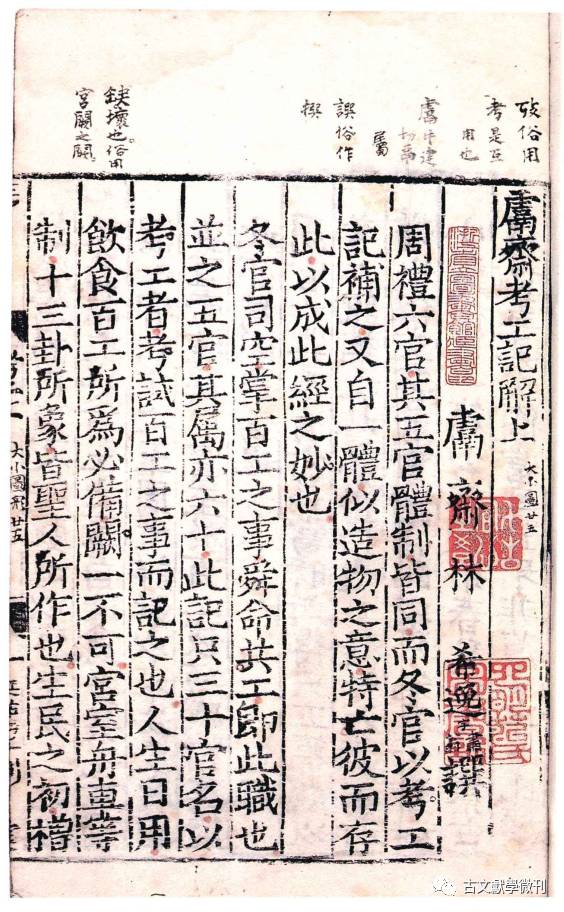 攷俗用
考是正
用也
誤俗作
撰
缺壞也俗用
宮闕之闕
鬳齋考工記解上
鬳齋林 希逸 撰
周禮六官其五官體制皆同而冬官以考工
記補之又自一體似造物之意特亡彼而存
此以成此經之妙也
冬官司空掌百工之事舜命共工即此職也
並之五官其属亦六十此記只三十官名以
考工者考試百工之事而記之也人生日用
飲食百工所為必備闕一不可宮室舟車等
制十三卦所象皆聖人所作也生民之初橧
古文獻學微刊